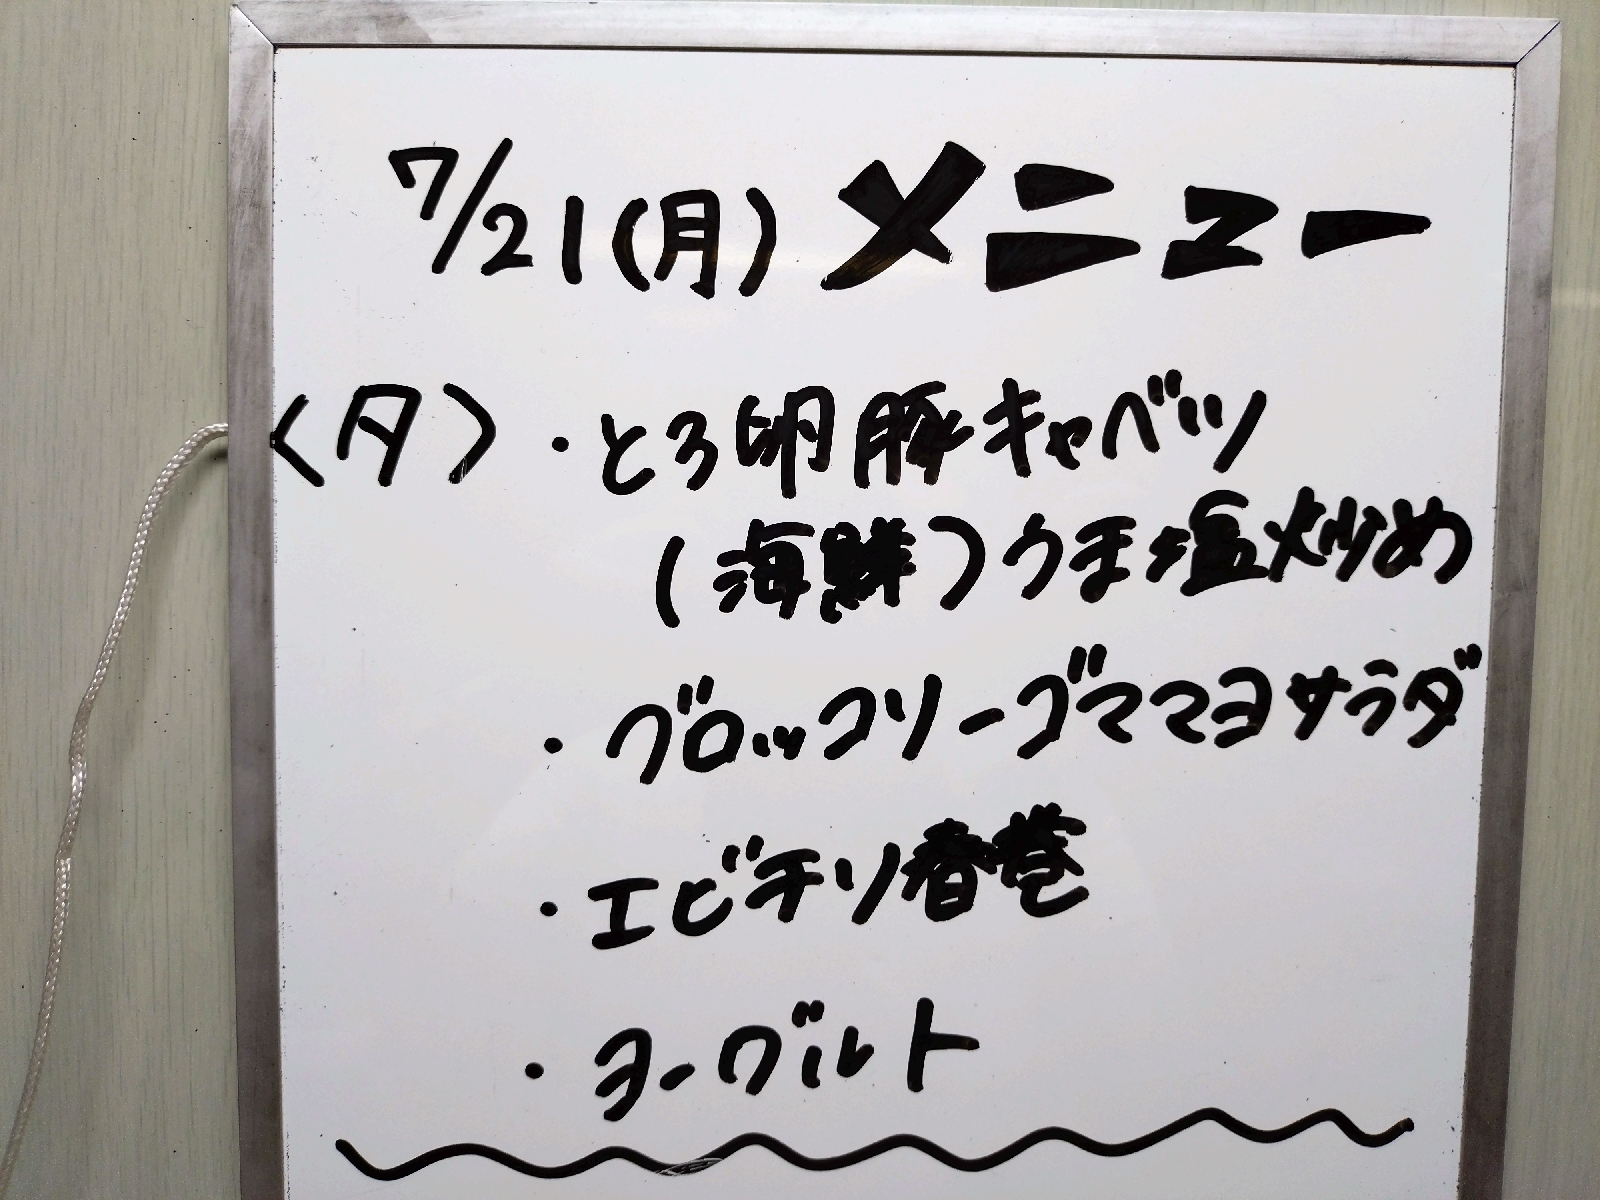 7/21(月)メニュー
〈夕〉・とろ卵豚キャベツ
(海鮮)うま塩炒め
・ブロッコリーゴママヨサラダ
・エビチリ春巻
・ヨーグルト